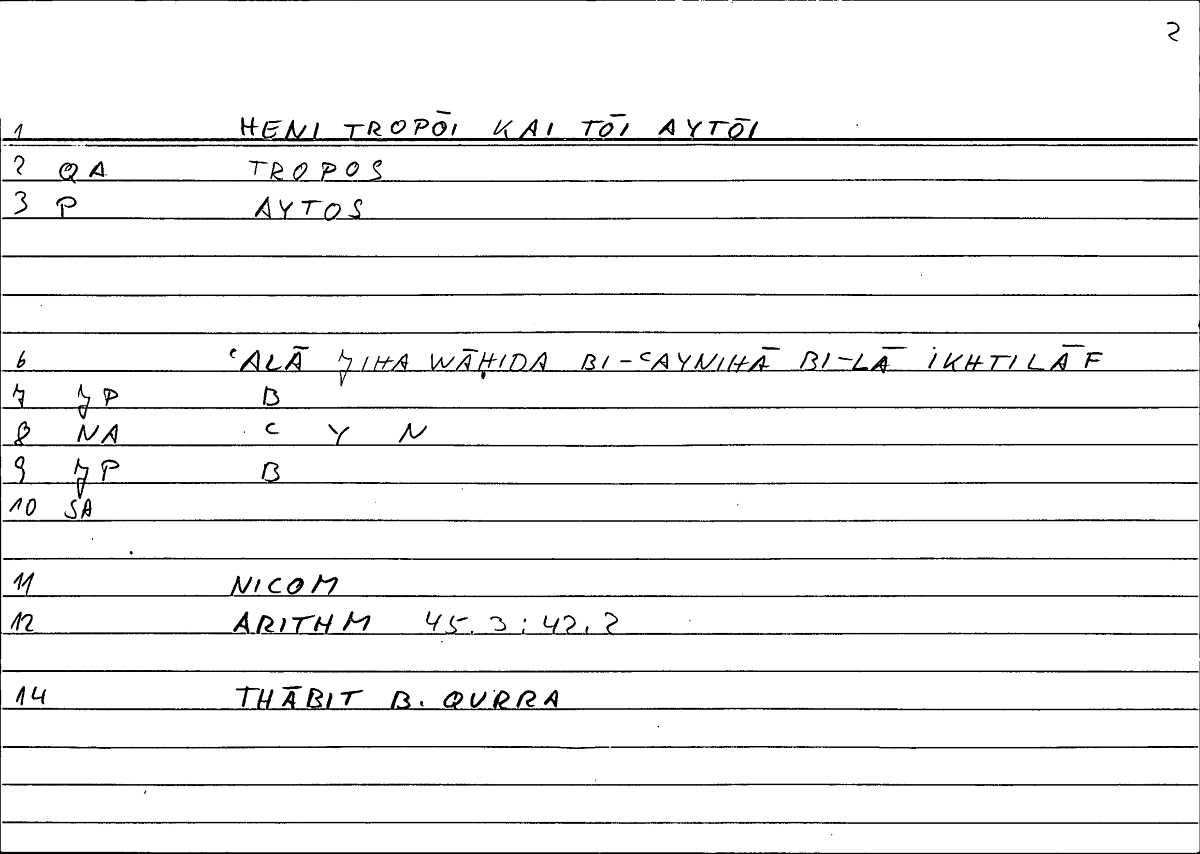 2
1 HENI TROPŌI KAI TŌI AYTŌI
2 QA TROPOS
3 P AYTOS
6 ʿALĀ JIHA WĀḤIDA BI-ʿAYNIHĀ BI-LĀ IKHTILĀF
7 JP B
8 NA ʿ Y N
9 JP B
10 SA
11 NICOM
12 ARITHM 45.3:42.2
14 THĀBIT B. QURRA